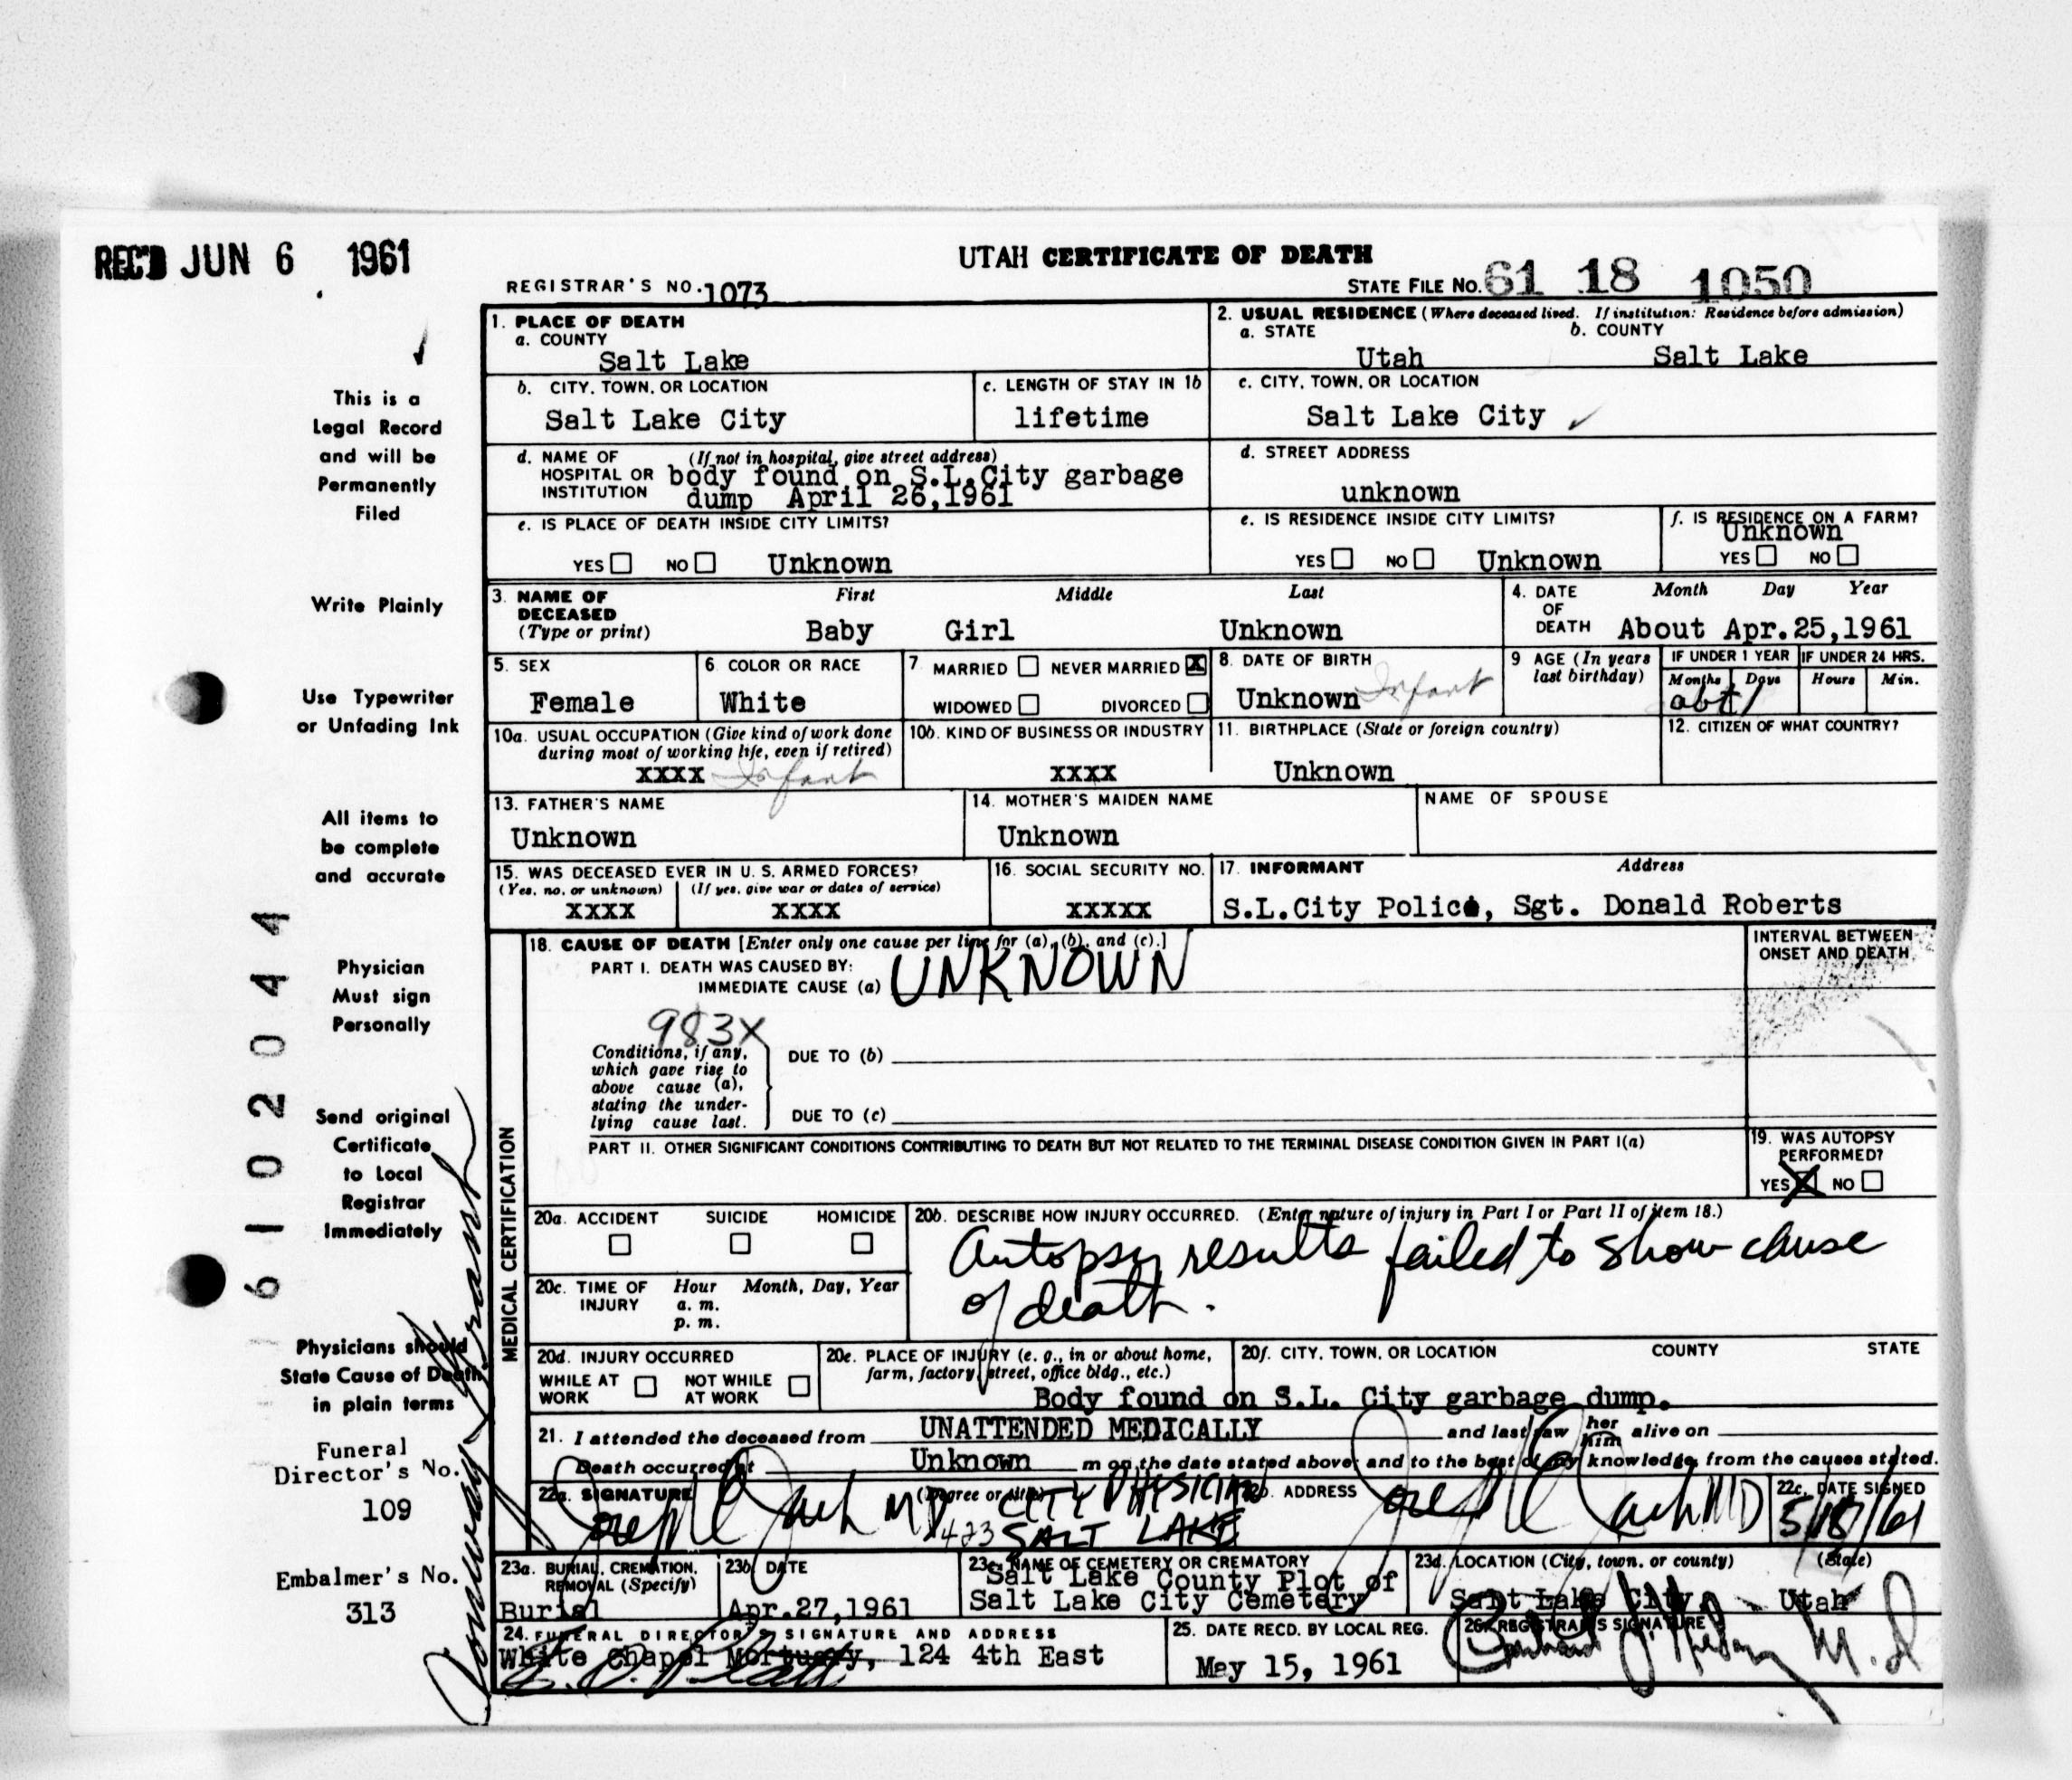 REC'D JUN 6 1961
UTAH CERTIFICATE OF DEATH
REGISTRAR'S NO. 1073
STATE FILE NO. 61 18 1050
This is a
Legal Record
and will be
Permanently
Filed
Write Plainly
Use Typewriter
or Unfading Ink
All items to
be complete
and accurate
Physician
Must sign
Personally
Send original
Certificate
to Local
Registrar
Immediately
Physicians should
State Cause of Death
in plain terms
Funeral
Director's No.
109
Embalmer's No.
313
6102044
1. PLACE OF DEATH
a. COUNTY
Salt Lake
2. USUAL RESIDENCE (Where deceased lived. If institution: Residence before admission)
a. STATE b. COUNTY
Utah Salt Lake
b. CITY, TOWN, OR LOCATION
Salt Lake City
c. LENGTH OF STAY IN 1b
lifetime
c. CITY, TOWN, OR LOCATION
Salt Lake City
d. NAME OF (If not in hospital, give street address)
HOSPITAL OR body found on S.L.City garbage
INSTITUTION dump April 26,1961
d. STREET ADDRESS
unknown
e. IS PLACE OF DEATH INSIDE CITY LIMITS?
YES NO Unknown
e. IS RESIDENCE INSIDE CITY LIMITS?
YES NO Unknown
f. IS RESIDENCE ON A FARM?
Unknown
YES NO
3. NAME OF First Middle Last
DECEASED
(Type or print) Baby Girl Unknown
4. DATE Month Day Year
OF
DEATH About Apr.25,1961
5. SEX
Female
6. COLOR OR RACE
White
7. MARRIED NEVER MARRIED X
WIDOWED DIVORCED
8. DATE OF BIRTH
Unknown Infant
9 AGE (In years
last birthday)
IF UNDER 1 YEAR IF UNDER 24 HRS.
Months Days Hours Min.
abt 1
10a. USUAL OCCUPATION (Give kind of work done
during most of working life, even if retired)
XXXX Infant
10b. KIND OF BUSINESS OR INDUSTRY
XXXX
11. BIRTHPLACE (State or foreign country)
Unknown
12. CITIZEN OF WHAT COUNTRY?
13. FATHER'S NAME
Unknown
14. MOTHER'S MAIDEN NAME
Unknown
NAME OF SPOUSE
15. WAS DECEASED EVER IN U. S. ARMED FORCES?
(Yes, no, or unknown) (If yes, give war or dates of service)
XXXX XXXX
16. SOCIAL SECURITY NO.
XXXXX
17. INFORMANT Address
S.L.City Police, Sgt. Donald Roberts
MEDICAL CERTIFICATION
18. CAUSE OF DEATH [Enter only one cause per line for (a), (b), and (c).]
PART I. DEATH WAS CAUSED BY:
IMMEDIATE CAUSE (a) UNKNOWN
INTERVAL BETWEEN
ONSET AND DEATH
983X
Conditions, if any,
which gave rise to
above cause (a),
stating the under-
lying cause last.
DUE TO (b)
DUE TO (c)
PART II. OTHER SIGNIFICANT CONDITIONS CONTRIBUTING TO DEATH BUT NOT RELATED TO THE TERMINAL DISEASE CONDITION GIVEN IN PART I(a)
19. WAS AUTOPSY
PERFORMED?
YES X NO
20a. ACCIDENT SUICIDE HOMICIDE
20b. DESCRIBE HOW INJURY OCCURRED. (Enter nature of injury in Part I or Part II of item 18.)
Autopsy results failed to show cause
of death.
20c. TIME OF Hour Month, Day, Year
INJURY a. m.
p. m.
20d. INJURY OCCURRED
WHILE AT NOT WHILE
WORK AT WORK
20e. PLACE OF INJURY (e. g., in or about home,
farm, factory, street, office bldg., etc.)
20f. CITY, TOWN, OR LOCATION COUNTY STATE
Body found on S.L. City garbage dump.
21. I attended the deceased from UNATTENDED MEDICALLY and last saw her him alive on
Death occurred at Unknown m on the date stated above; and to the best of my knowledge, from the causes stated.
22a. SIGNATURE (Degree or title) 22b. ADDRESS 22c. DATE SIGNED
MD CITY PHYSICIAN MD 5/18/61
423 SALT LAKE
23a. BURIAL, CREMATION,
REMOVAL (Specify)
Burial
23b. DATE
Apr.27,1961
23c. NAME OF CEMETERY OR CREMATORY
Salt Lake County Plot of
Salt Lake City Cemetery
23d. LOCATION (City, town, or county) (State)
Salt Lake City, Utah
24. FUNERAL DIRECTOR'S SIGNATURE AND ADDRESS
White Chapel Mortuary, 124 4th East
25. DATE RECD. BY LOCAL REG.
May 15, 1961
26. REGISTRAR'S SIGNATURE
M.D